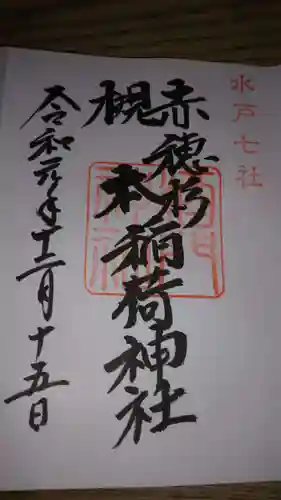 水戸七社
赤穂杉
槻本稲荷神社
令和元年十二月十五日